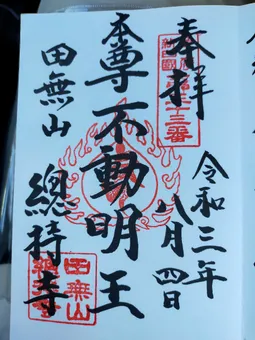 奉拝
令和三年
八月四日
本尊不動明王
田無山
總持寺
三十三番
田無山
總持寺